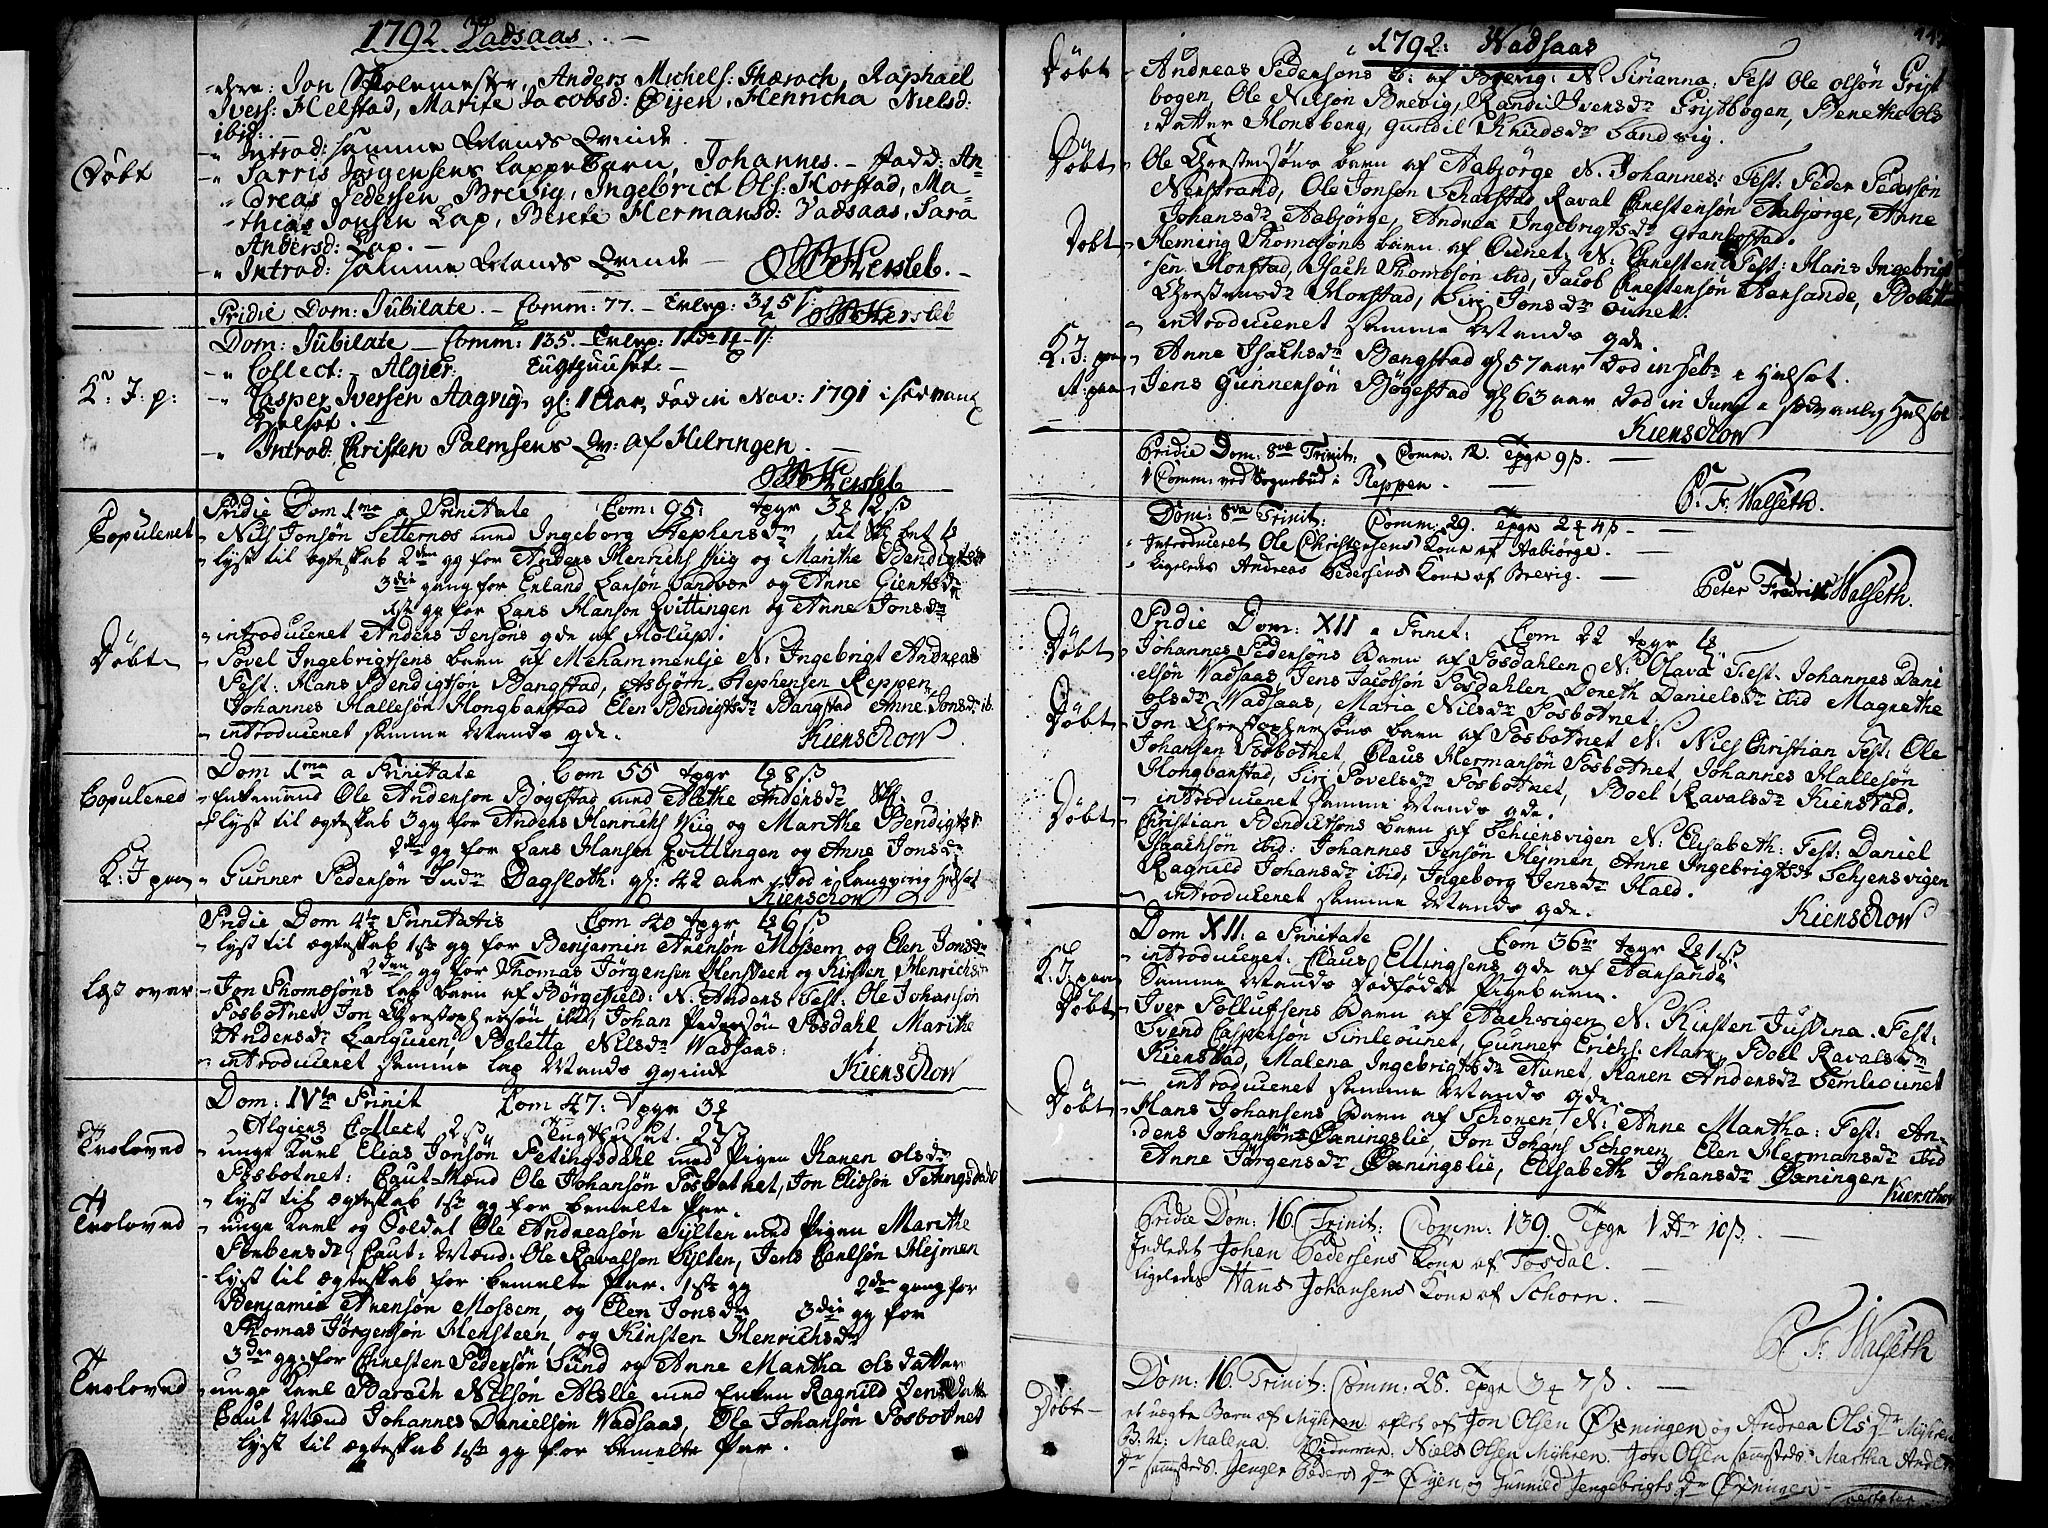 1792 Vadsaas
-dere: Jon Skolemester, Anders Michels: Færoch, Raphael
Ivers: Helstad, Marite Jacobsd: Øijen, Henricha Niels d:
ibid:
" Introd: samme Mands Qvinde.
Døbt " Sarris Jørgensens Lappe Barn, Johannes. - Fadd: An-
" dreas Pedersen Brevig, Ingebrict Ols: Horstad, Ma-
-thias Jonsen Lap, Berete Hermansd: Vadsaas, Sara
Andersd: Lap. -
" Introd: samme Mands Qvinde -
Pridie Dom: Jubilate. - Comm: 77. -
Dom: Jubilate - Comm: 135. -
" Collect: - Algier: Tugthuuset. -
K: J: p: " Casper Iversen Aagvig, gl: 1 Aar, død in Nov: 1791 i
Halsot. -
" Introd: Christen Palmsens Qv: af Hilringen. -
Pridie Dom 1ma a Trinitate Com: 95: tpgr 3 12 ß
Copuleret - Nils Jonsøn Setternæs med Ingeborg Stephensdr
- lyst til ægteskab 2den gg for Anders Henrichs Viig og Marithe Bendigtsdr
3die gang for Erland Larsøn Sandvær og Anne
1ste gg for Lars Hansen Qvittingen og Anne Jonsdr
- introduceret Anders Jensøns qde af Molup:
Døbt - Povel Ingebrigtsens barn af Mehammerlie N: Ingebrigt Andreas
Test: Hans Bendigtsøn Bangstad, Asbjørn Stephensen Reppen,
Johannes Hallesøn Hongbarstad Elen Bendigtsdr Bangstad Anne Jonsdr ib.
- introduceret samme Mands qde. Kierschow
Dom 1ma a Trinitate Com 55 tpgr 8 ß
Copulered - Enkemand Ole Anderson Bøgestad med Alethe Andersdr
- lyst til ægteskab 3 gg for Anders Henrichs Viig og Marithe Bendigtsdr
2den gg for Lars Hansen Qvittingen og Anne Jonsdr
K: J paa - Gunner Pedersøn Indr Dagsloth: gl: 42 aar død i
Kierschow
Pridie Dom 4te Trinitatis Com 40 tpgr 6 ß
- lyst til ægteskab 1ste gg for Benjamin Arensøn Mossem og Elen Jonsdr
2den gg for Thomas Jørgensen Hensteen og Kirsten Henrichsdr
Læst over - Jon Thomesøns Lap barn af Børgefield: N: Anders Test: Ole Johansøn
Fosbotnet Jon Christophersøn ibid, Johan Pedersøn Fosdahl Marithe
Andersdr, Beletta Nilsdr Wadsaas:
- introduceret samme Lap Mands qvinde Kierschow
Dom: IVta Trinit Com 47: tpgr 3
Algiers Collect 2 ß Tugthuset. 2 ß
Troloved - unge Karl Elias Jonsøn Fetingsdahl med Pigen Karen olsdr
Fosbotnet: Caut-Mænd Ole Johansøn Fosbotnet, Jon Eliesøn Fetingsdahl
- lyst til ægteskab 1ste gg for bemelte Par.
Troloved - unge Karl og Soldat Ole Andreasøn Sylten med Pigen Marithe
Torbersdr, Caut: Mænd: Ole Ravalson Sylten, Jens Carlsøn Hejmen
- lyst til ægteskab for bemelte Par. 1ste gg 2den gang for
Benjamin Arensøn Mossem, og Elen Jonsdr 3die gg for
Thomas Jørgensøn Hensteen, og Kirsten Henrichsdr
3die gg: for Chresten Pedersøn Sund og Anne Martha olsdatter
Troloved - unge Karl Baroch Nilsøn Melle med Enken Ragnild Jensdatter
Caut Mænd Johannes Danielsøn Wadsaas, Ole Johansøn Fosbotnet
lyst til ægteskab 1ste gg for bemelte Par.
1792: Wadsaas
Døbt - Andreas Pedersons b: af Brevig: N: Sirianna: Test Ole olsøn Gryt
bogen, Ole Nilsøn Brevig, Randi Ivensdr Grytbogen, Benethe Ols
datter Honsberg, Gunil Knudsdr Sandvig.
Døbt - Ole Chrestensøns barn af Aabjørge N. Johannes: Test: Peder Pedersøn
Nerstrand, Ole Jonsøn Scharstad, Raval Chrestensøn Aabjørge, Anne
Johansdr Aabjørge, Andrea Ingebrigtsdr Granbostad.
Døbt - Heming Thomesøns barn af Øunet, N: Chresten: Test: Hans Ingebrigt
sen Horstad, Isach Thomesøn ibid, Jacob Chrestensøn Aarsande, Bolette
Chrestensdr Horstad, Siri Jonsdr Øunet.
- introduceret samme Mands qde.
K: J: paa - Anne Isachsdr Bangstad gl 57 aar død in febr: Halsot.
it paa - Jens Gunnersøn Bøgestad gl 63 aar død in Junij sædvanlig Halsot
Kierschow
Pridie Dom: 8va Trinit: Comm: 12. Tpgr 9 ß. -
1 Comm: ved Sognebud i Reppen. -
P. Fr: Walseth.
Dom: 8va Trinit: Comm: 29. Tpgr 2 4 ß -
- Introduceret Ole Christensens Kone af Aabiørge. -
- ligeledes Andreas Pedersens Kone af Brevig. -
Peter Fredrik Walseth.
Pridie Dom: XII a Trinit: Com 22 tpgr
Døbt - Johannes Pedersøns Barn af Fosdahlen, N: Olava Test. Johannes Dani
elsøn Wadsaas, Jens Jacobsøn Fosdahlen, Doreth Danielsdr ibid Magrethe
olsdr Wadsaas, Maria Nilsdr Fosbotnet.
Døbt - Jon Christophersøns barn af Fosbotnet N: Nils Christian Test: Ole
Johansen Fosbotnet Claus Hermansøn Fosbotnet, Johannes Hallesøn
Hongbarstad, Siri Povelsdr Fosbotnet, Boel Ravalsdr Kierstad.
- introduceret samme Mands qde.
Døbt - Christian Bendictsøns barn af Schiersvigen N: Elisabeth: Test: Daniel
Isachsøn ibid: Johannes Jensøn Hejmen, Anne Ingebrigtsdr Schjersvigen
Ragnild Johansdr ibid, Ingeborg Jensdr Hald.
- introduceret samme Mands qde. Kierschow
Dom XII: a Trinitate Com 56 tpgr
- introduceret: Claus Ellingsens qde af Aarsande
K: J: paa - Samme Mands dødfødte Pigebarn.
Døbt - Iver Tollufsens Barn af Aachvigen N. Kirsten Justina. Test:
Svend Caspersøn Simleounet, Gunner Erichs: Marz, Boel Ravalsdr
Kierstad, Malena Ingebrigtsdr Aunet, Karen Andersdr Semleounet
- introduceret samme Mands qde.
Døbt - Hans Johansens Barn af Schoren, N. Anne Martha: Test: An-
ders Johansøn Øxningslie, Jon Johans Schoren, Elen Hermansdr ibid
Anne Jørgensdr Øxningslie, Elisabeth Johansdr Øxningen Kierschow
Pridie Dom: 16. Trinit: Comm: 139. Tpgr 1 dr 10 ß. -
Indledet Johen Pedersens Kone af Fosdal. -
ligeledes Hans Johansens Kone af Schorn. -
P. Fr: Walseth
Dom: 16. Trinit: Comm: 28. Tpgr 3 7 ß. -
Døbt - et uægte Barn af Myhren, afles af Jon Olsen Øxningen og Andrea Olsdr Myhren
B: N: Malena. Faderne: Niels Olsen Myhren, Jon Olsen sammesteds. Martha Anders
dr sammesteds. Jenger Peders dr Øijen og Gunnild Jengebrigts dr Øxningen -